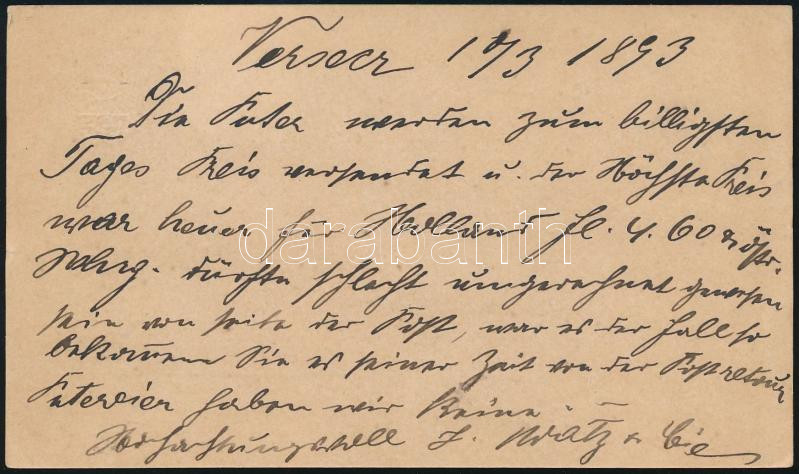 Versecz 10/3 1893
Die Puter werden zum billigsten
Tages Preis versendet u. der Höchste Preis
war heuer für Holland fl. 4.60 östr.
Whrg. dürfte schlecht umgerechnet gewesen
sein von seite der Post, war es der Fall so
bekommen Sie es seiner Zeit von der Post retour
Putereier haben wir keine.
Hochachtungsvoll & Cie
darabanth